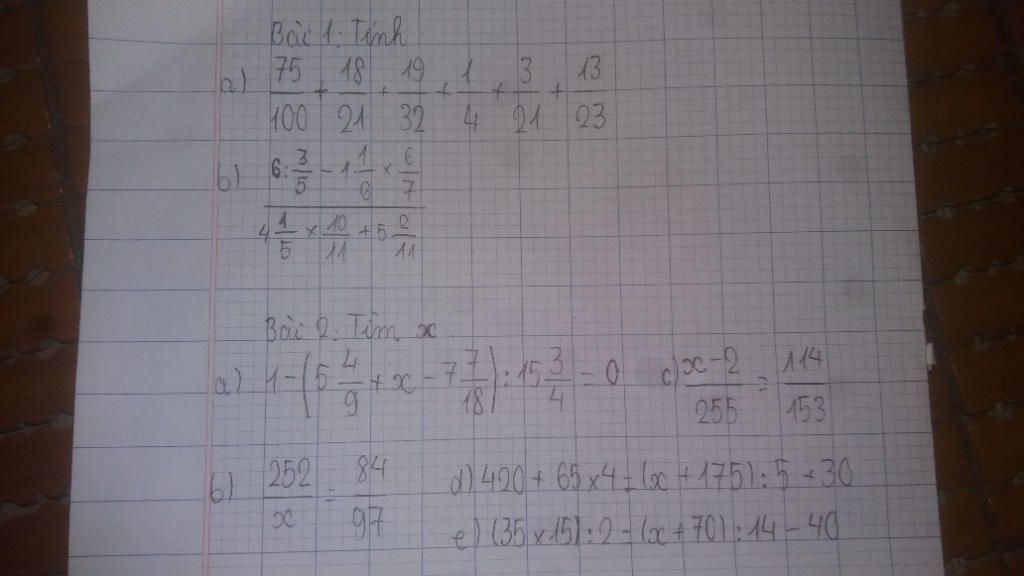 Bài 1: Tính
a) 75/100 + 18/21 + 19/32 + 1/4 + 3/21 + 13/23
b) (6 : 3/5 - 1 1/6 × 6/7) / (4 1/5 × 10/11 + 5 2/11)
Bài 2: Tìm x
a) 1 - (5 4/9 + x - 7 7/18) : 15 3/4 = 0 c) (x - 2)/255 = 114/153
b) 252/x = 84/97 d) 420 + 65 × 4 = (x + 175) : 5 + 30
e) (35 × 15) : 2 = (x + 70) : 14 - 40